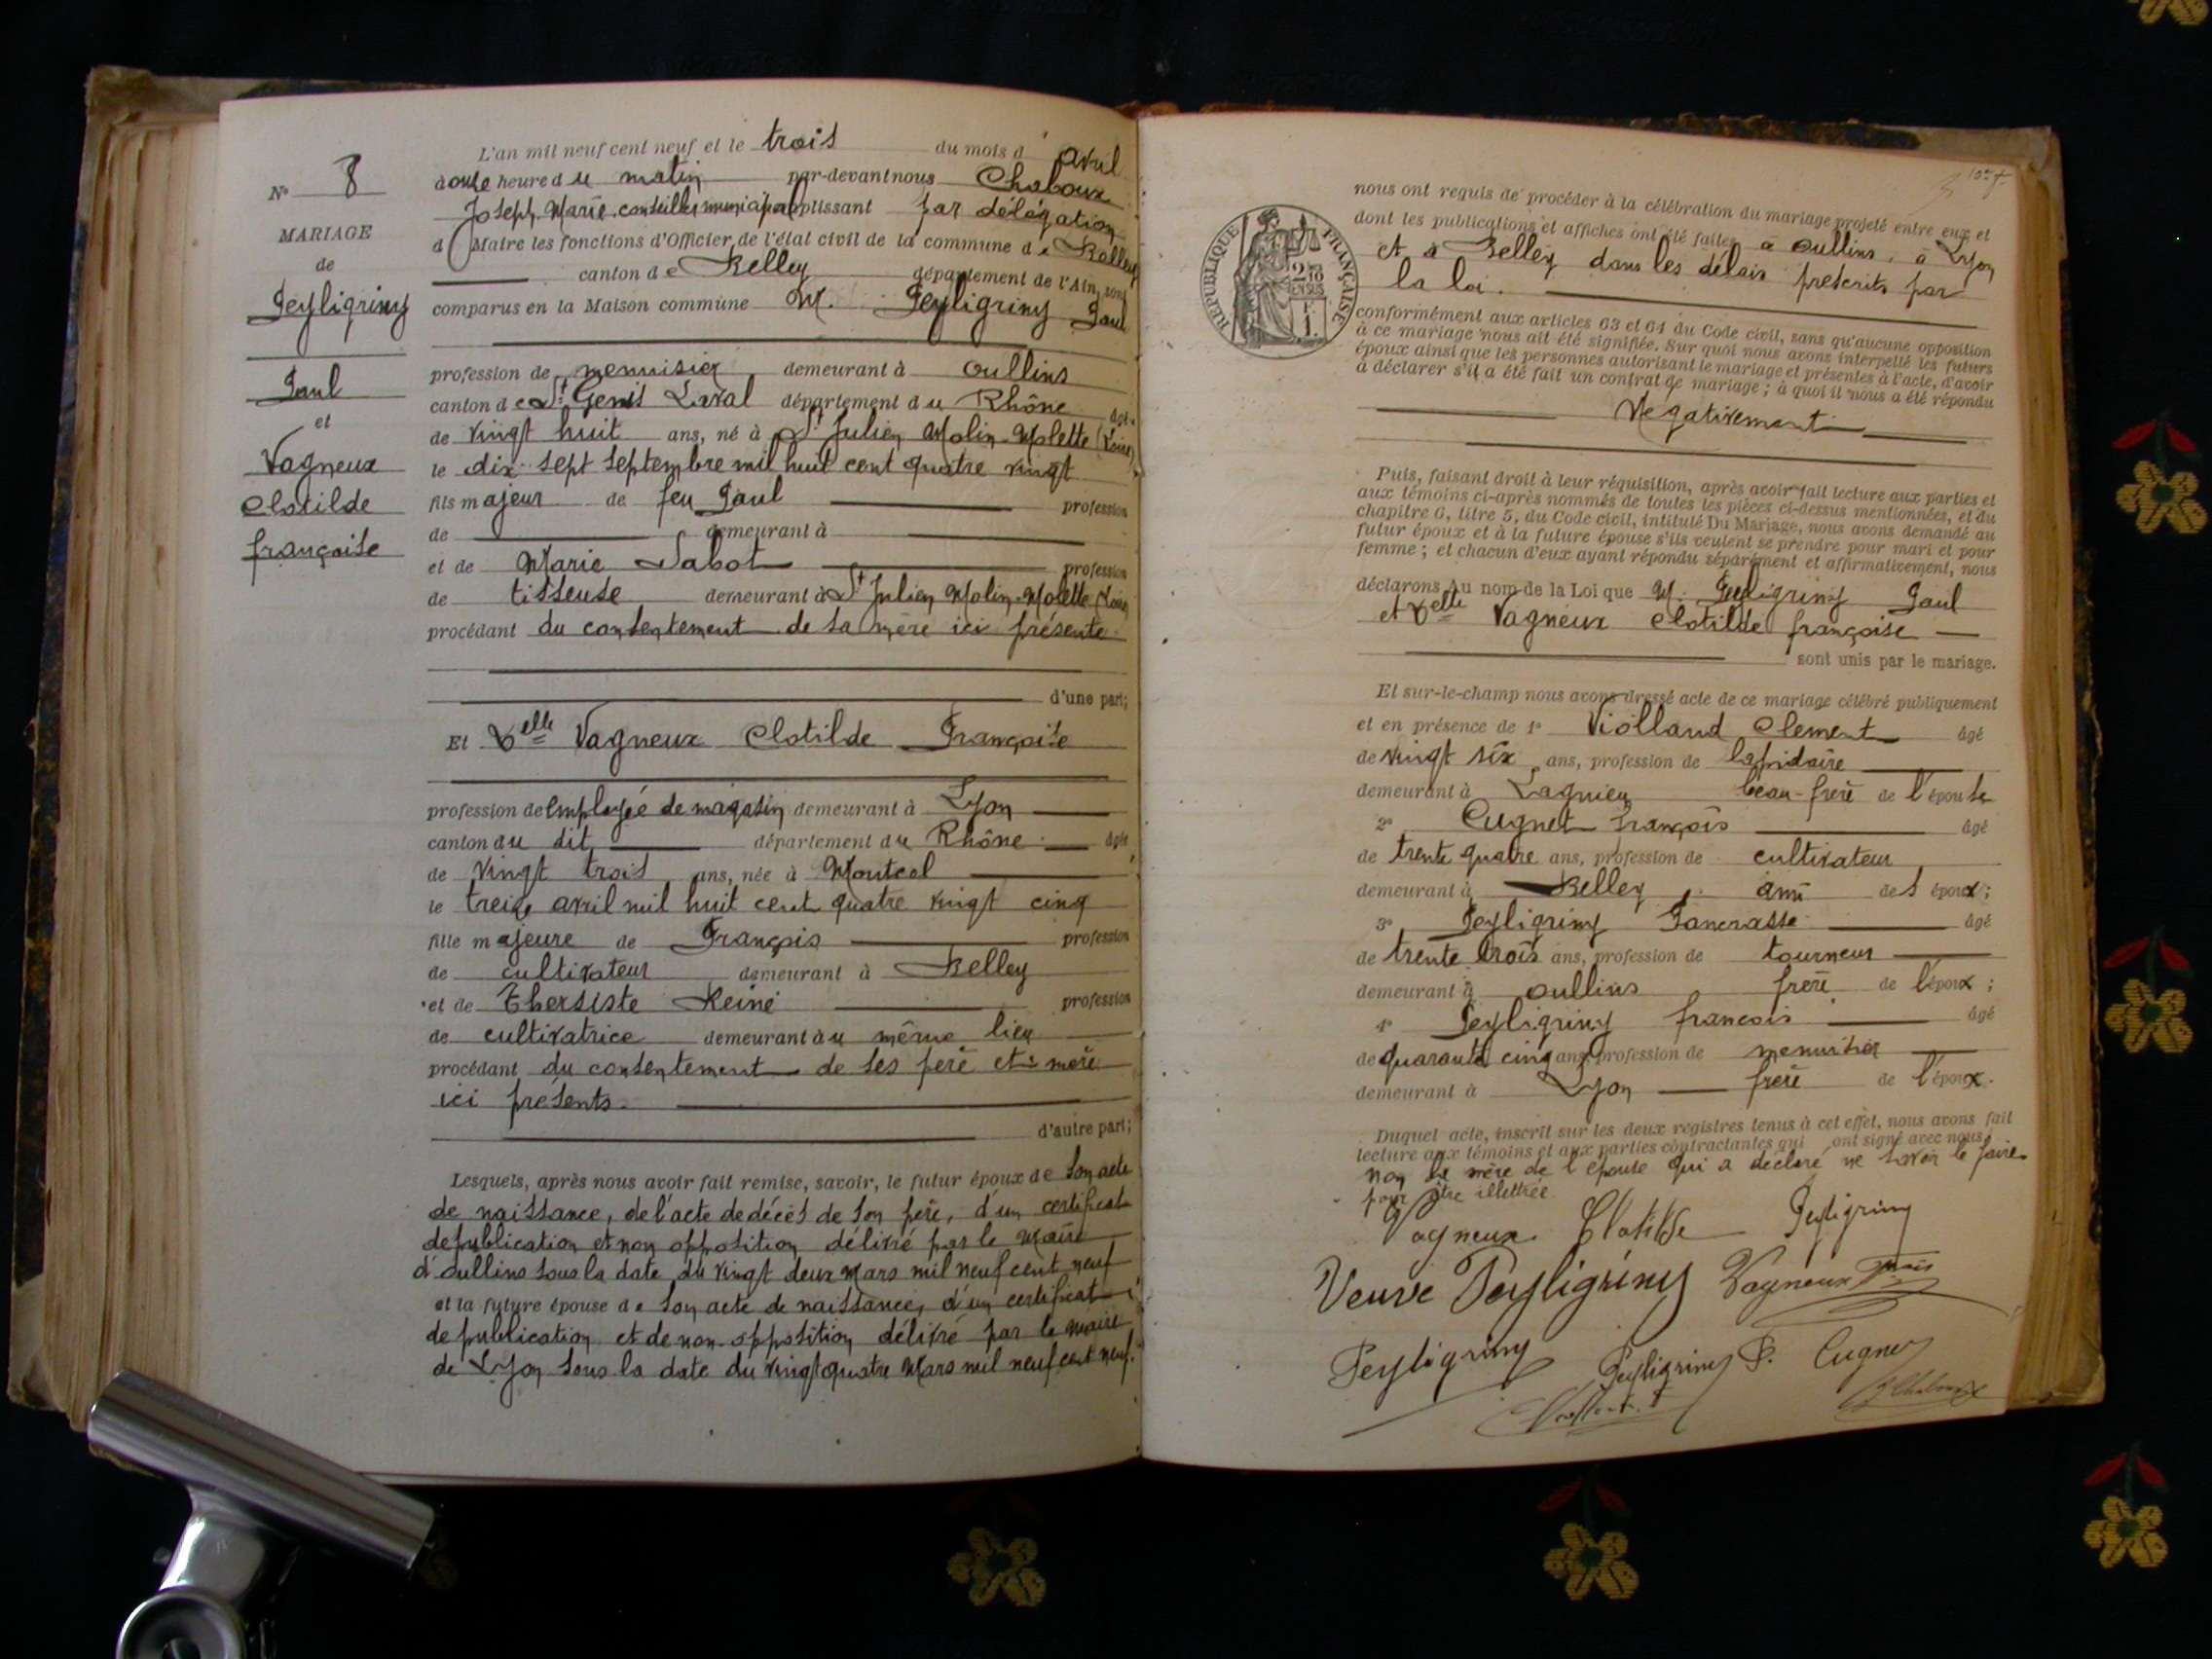 N° 8
MARIAGE
de
Peyligriny
Paul
et
Vagneux
Clotilde
françoise
L'an mil neuf cent neuf et le trois du mois d'avril
à onze heure du matin par-devant nous Chaboux
Joseph Marie conseiller municipal remplissant par délégation
d Maire les fonctions d'Officier de l'état civil de la commune de Belley
canton de Belley département de l'Ain, sont
comparus en la Maison commune M. Peyligriny Paul
profession de menuisier demeurant à Oullins
canton de St Genis Laval département du Rhône âgé
de vingt huit ans, né à St Julien Molin-Molette (Loire)
le dix sept septembre mil huit cent quatre vingt
fils majeur de feu Paul profession
de demeurant à
et de Marie Sabot profession
de tisseuse demeurant à St Julien Molin-Molette (Loire)
procédant du consentement de sa mère ici présente
d'une part;
Et Delle Vagneux Clotilde Françoise
profession de Employée de magasin demeurant à Lyon
canton du dit département du Rhône âgée
de vingt trois ans, née à Montcel
le treize avril mil huit cent quatre vingt cinq
fille majeure de François profession
de cultivateur demeurant à Belley
et de Thersiste Reine profession
de cultivatrice demeurant au même lieu
procédant du consentement de ses père et mère
ici présents
d'autre part;
Lesquels, après nous avoir fait remise, savoir, le futur époux de son acte
de naissance, de l'acte de décès de son père, d'un certificat
de publication et non opposition délivré par le maire
d'oullins sous la date du vingt deux Mars mil neuf cent neuf
et la future épouse de son acte de naissance, d'un certificat
de publication et de non-opposition délivré par le maire
de Lyon sous la date du vingt quatre Mars mil neuf cent neuf.
nous ont requis de procéder à la célébration du mariage projeté entre eux et
dont les publications et affiches ont été faites à Oullins, à Lyon
et à Belley dans les délais prescrits par
la loi.
RÉPUBLIQUE FRANÇAISE
conformément aux articles 63 et 64 du Code civil, sans qu'aucune opposition
à ce mariage nous ait été signifiée. Sur quoi nous avons interpellé les futurs
époux ainsi que les personnes autorisant le mariage et présentes à l'acte, d'avoir
à déclarer s'il a été fait un contrat de mariage; à quoi il nous a été répondu
Négativement
Puis, faisant droit à leur réquisition, après avoir fait lecture aux parties et
aux témoins ci-après nommés de toutes les pièces ci-dessus mentionnées, et du
chapitre 6, titre 5, du Code civil, intitulé Du Mariage, nous avons demandé au
futur époux et à la future épouse s'ils veulent se prendre pour mari et pour
femme; et chacun d'eux ayant répondu séparément et affirmativement, nous
déclarons Au nom de la Loi que M. Peyligriny Paul
et Delle Vagneux Clotilde françoise
sont unis par le mariage.
Et sur-le-champ nous avons dressé acte de ce mariage célébré publiquement
et en présence de 1° Violland Clement âgé
de vingt six ans, profession de lapidaire
demeurant à Lagnieu beau-frère de l'épouse
2° Cugnet françois âgé
de trente quatre ans, profession de cultivateur
demeurant à Belley ami des époux;
3° Peyligriny Pancrasse âgé
de trente trois ans, profession de tourneur
demeurant à oullins frère de l'époux;
4° Peyligriny francois âgé
de quarante cinq ans, profession de menuisier
demeurant à Lyon frère de l'époux.
Duquel acte, inscrit sur les deux registres tenus à cet effet, nous avons fait
lecture aux témoins et aux parties contractantes qui ont signé avec nous,
non la mère de l'épouse qui a déclaré ne savoir le faire
pour être illettrée
Vagneux Clotilde Peyligriny
Veuve Peyligriny Vagneux Fçois
Peyligriny Peyligriny P. Cugnet